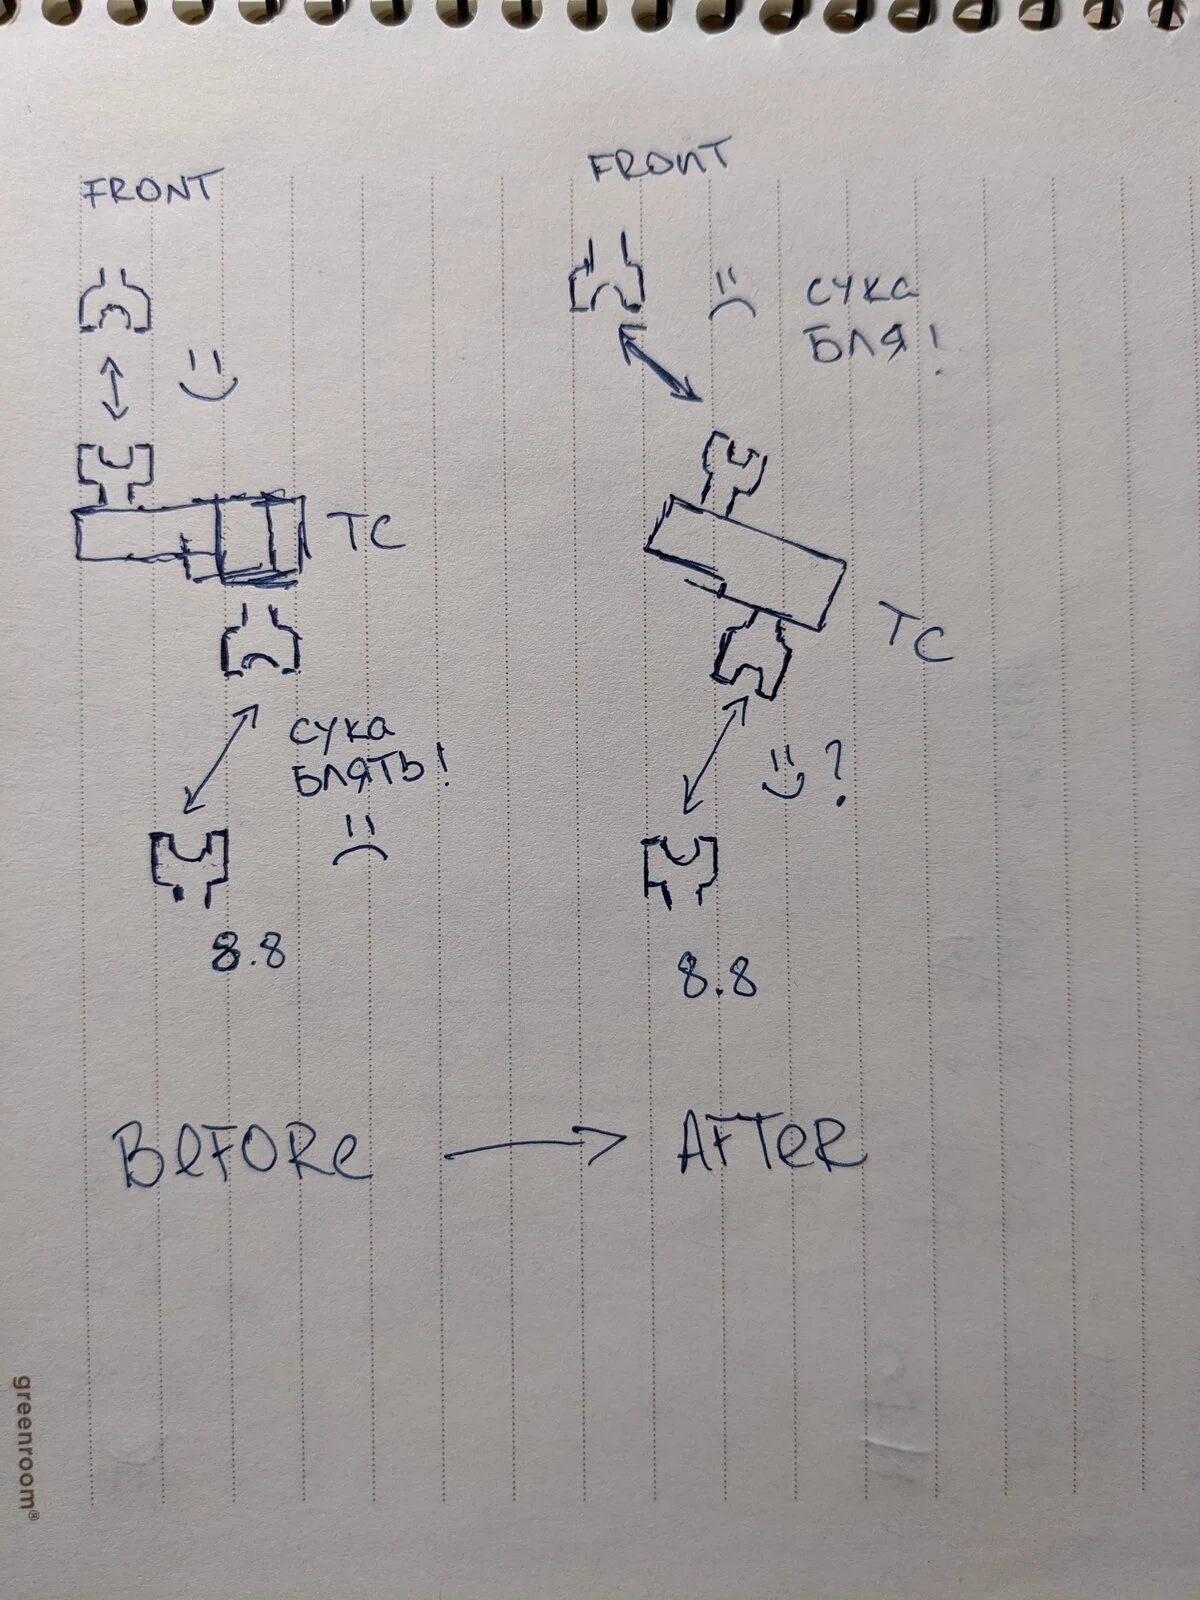 FRONT
TC
СУКА
БЛЯТЬ!
8.8
FRONT
СУКА
БЛЯ!
TC
?
8.8
BeFORe
AFTeR
greenroom®